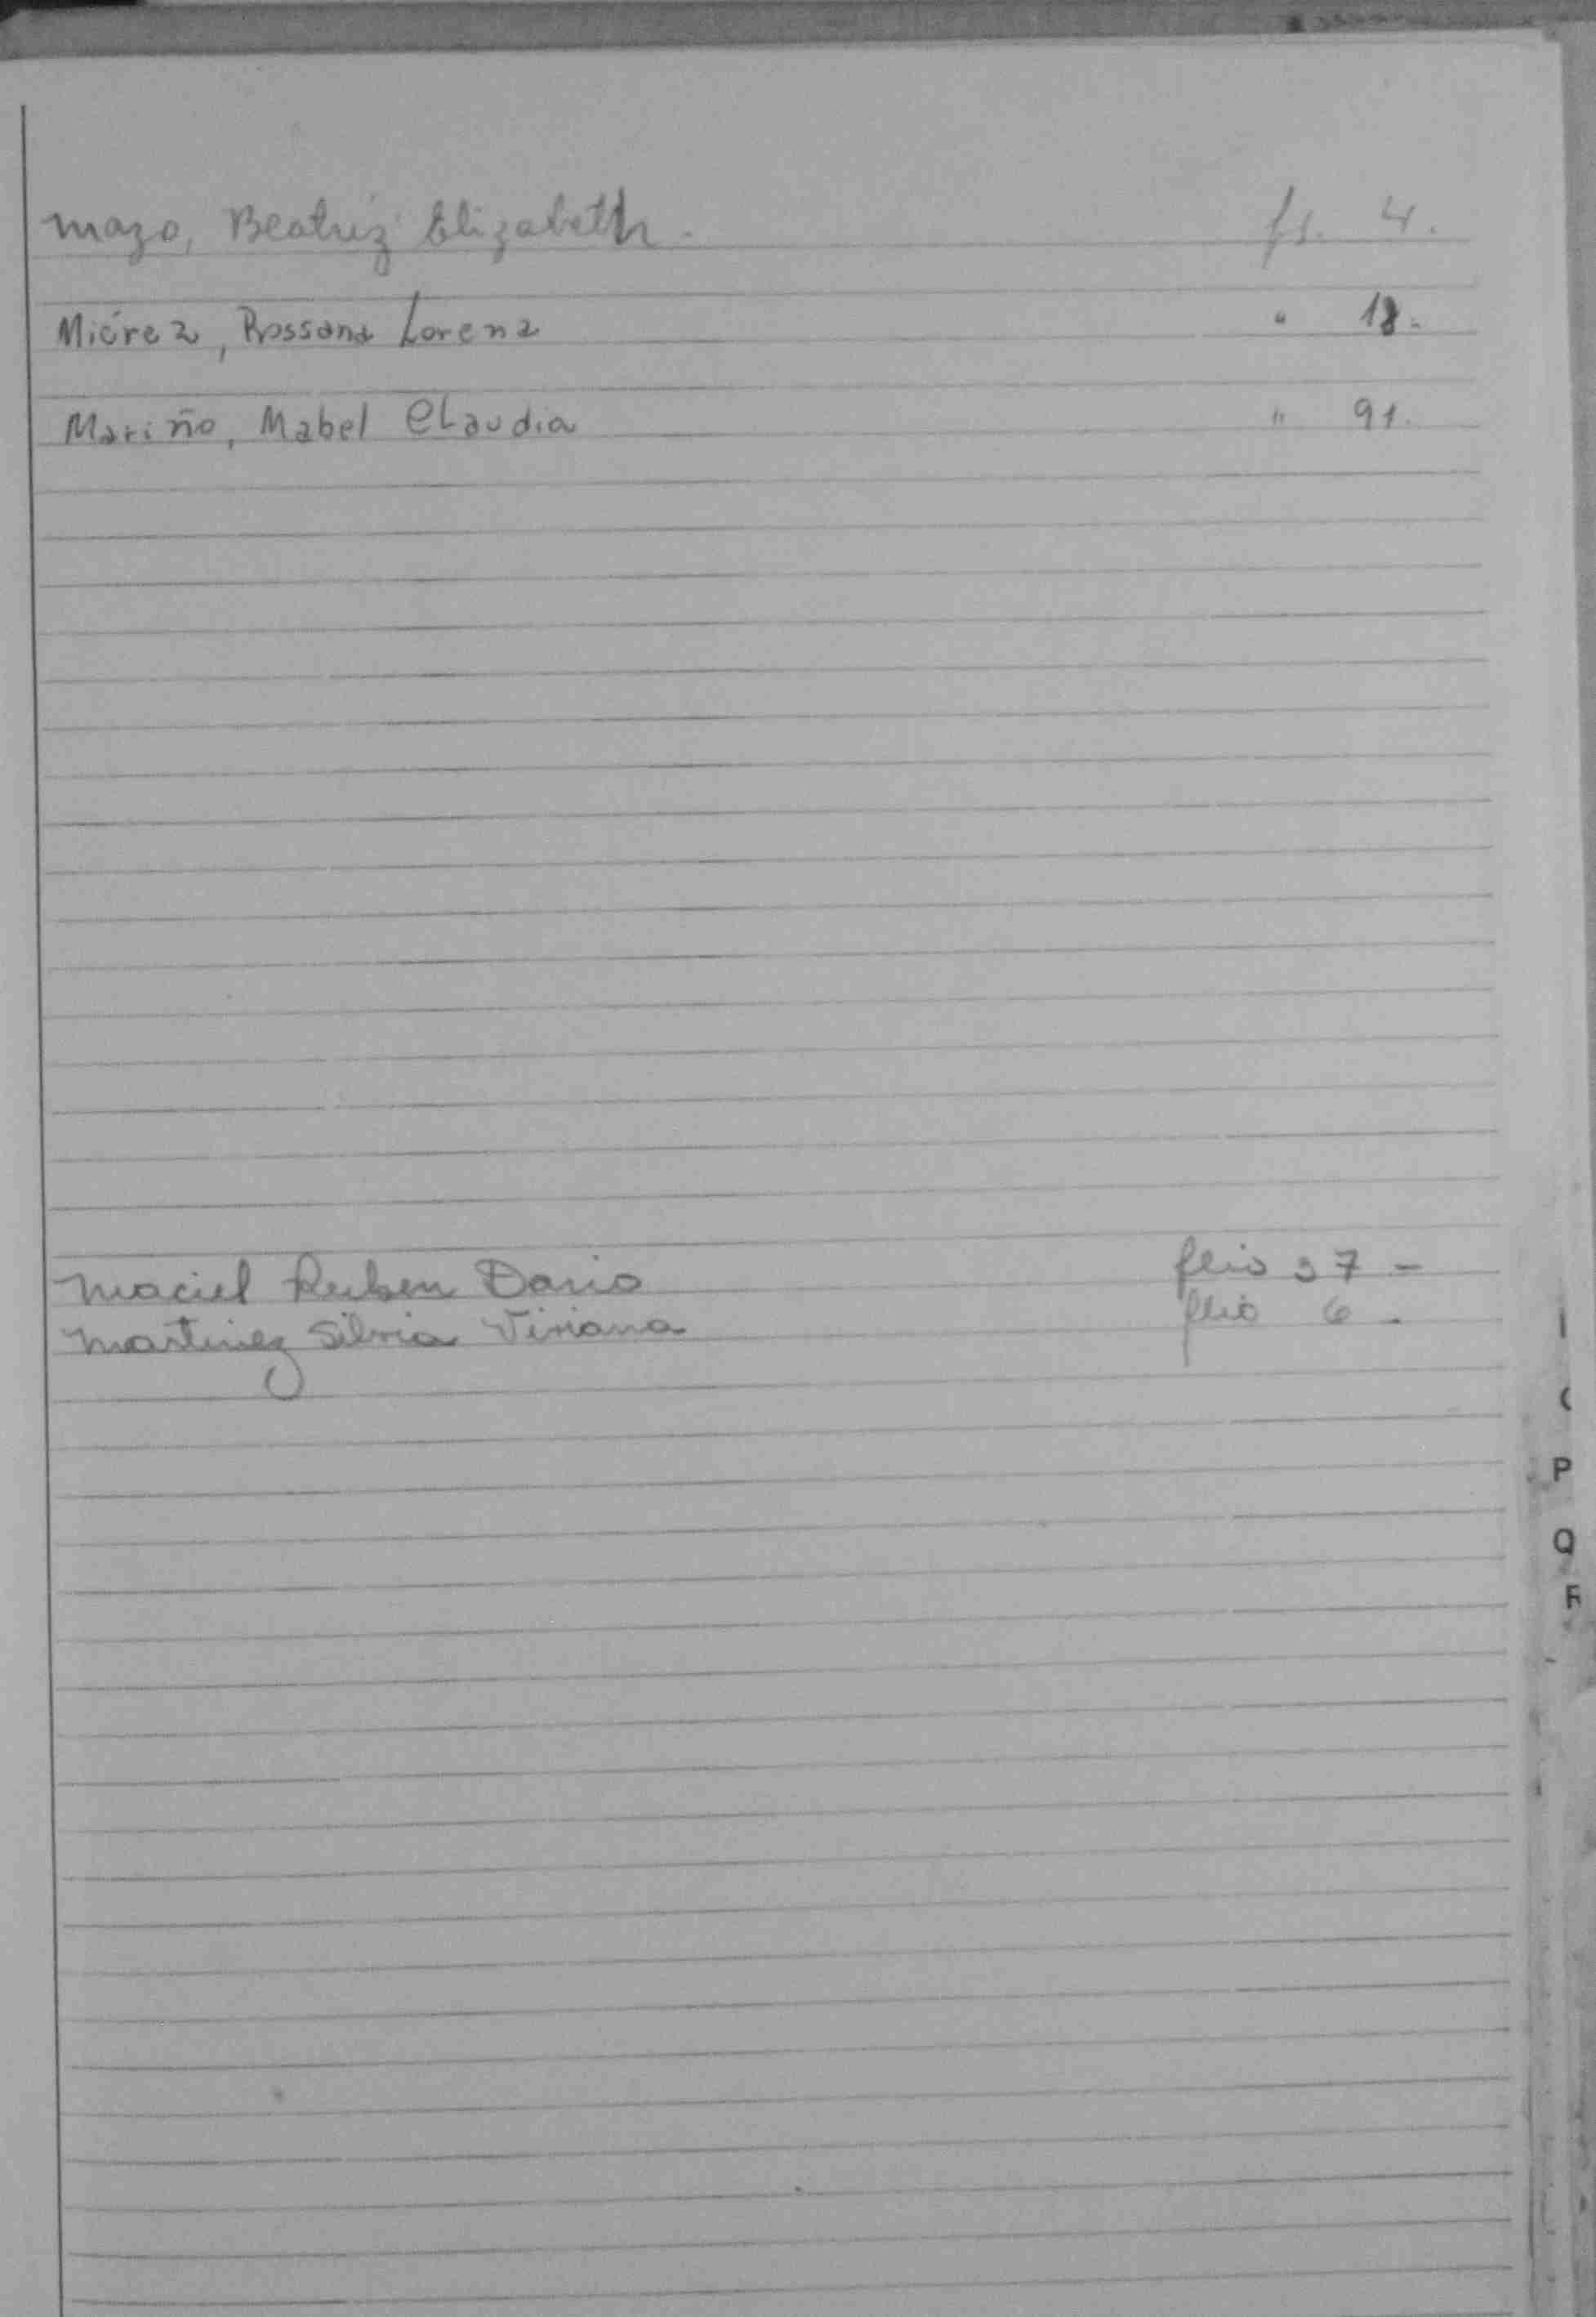 Mazo, Beatríz Elizabeth. fs. 4.
Miérez, Rossana Lorena " 18.
Mariño, Mabel Claudia " 91.
Maciel Ruben Dario flio 37 -
Martinez Silvia Viviana flio 6 -
P
Q